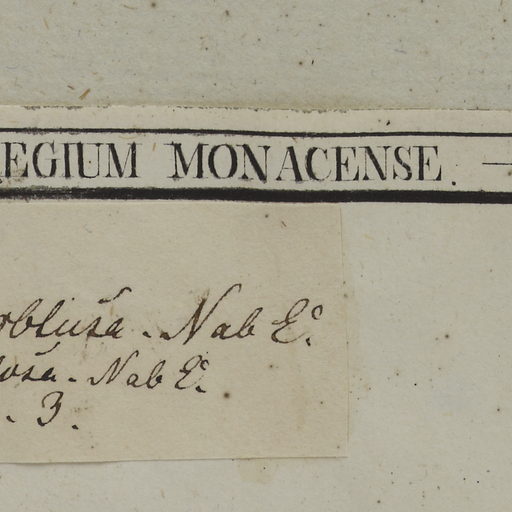 REGIUM MONACENSE.
obtusa. Nab E.
osa. Nab E.
. 3.